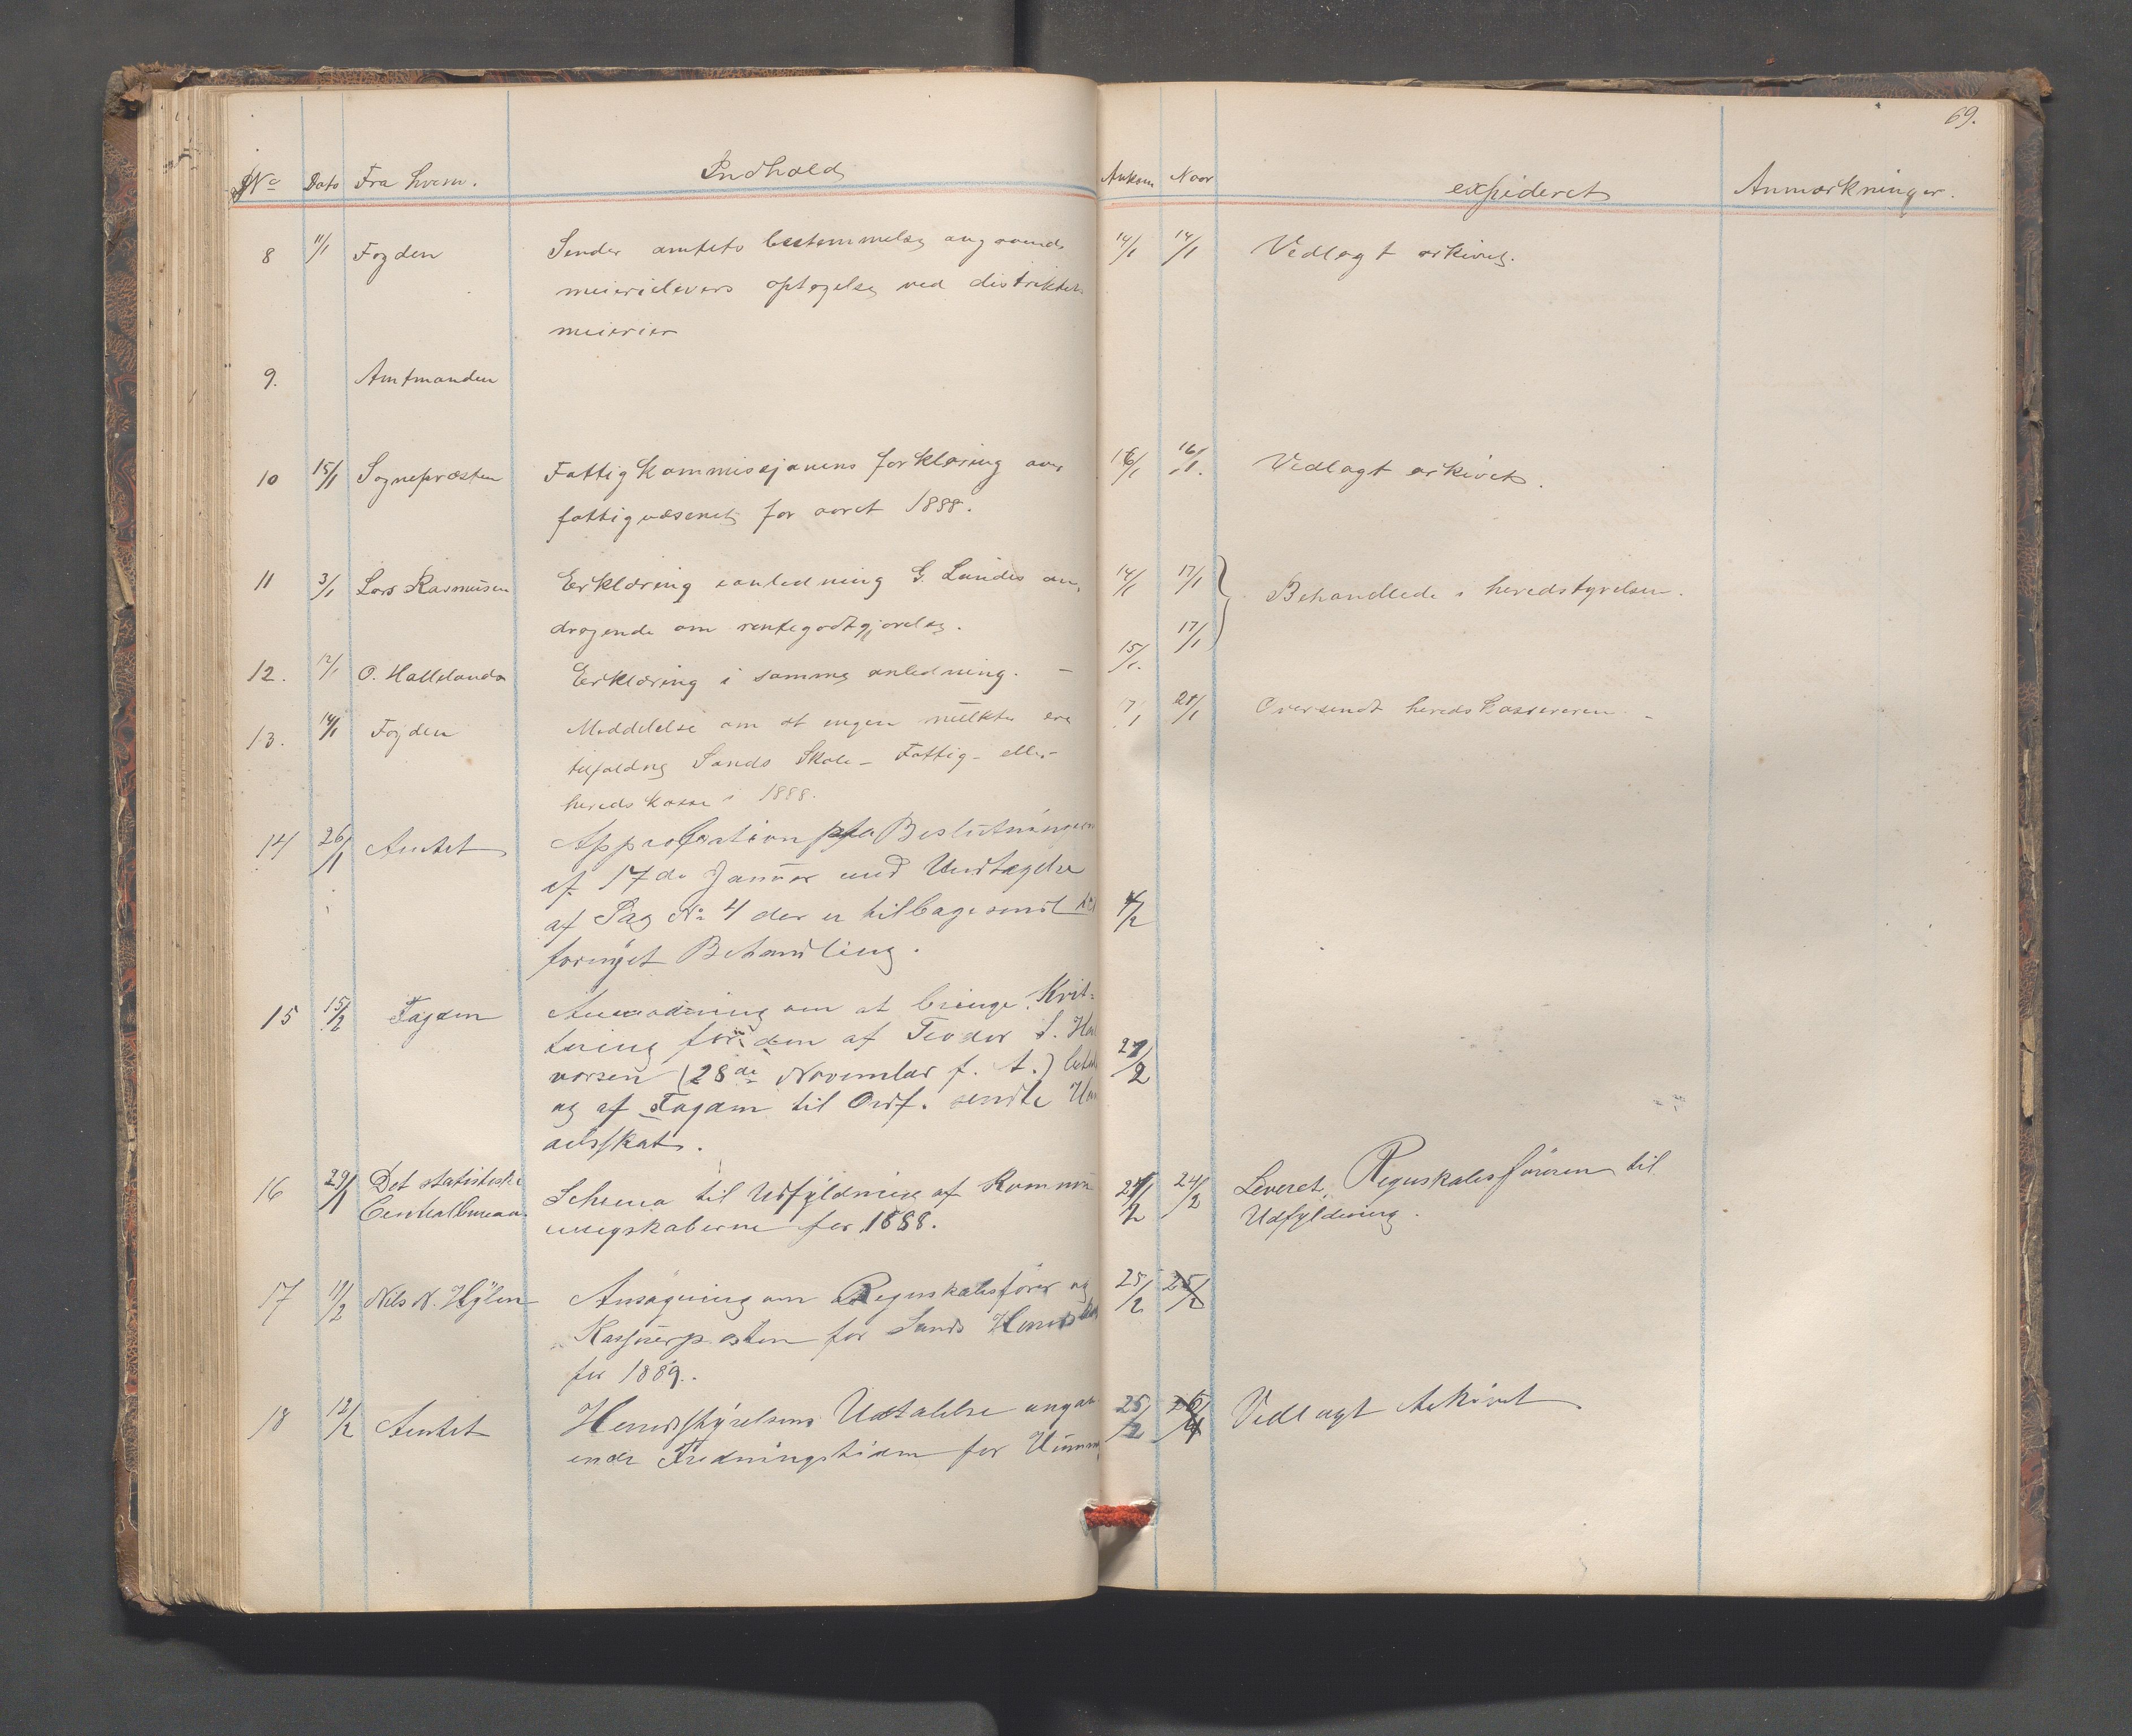 69.
No Dato Fra hvem. Indhold Ankom Naar expideret Anmærkninger.
8 11/1 Fogden Sender amtets bestemmelse angaaende 14/1 14/1 Vedlagt arkivet.
meierielevers optagelse ved distriktets
meierier
9. Amtmanden
10 15/1 Sognepræsten Fattigkommissjonens forklaring over 16/1 16/1. Vedlagt arkivet.
fattigvæsenet for aaret 1888.
11 3/1 Lars Rasmusen Erklæring i anledning G. Landes an- 14/1 17/1 Behandlede i heredstyrelsen.
dragende om rentegodtgjørelse. 17/1
12. 12/1 O. Hallelands Erklæring i samme anledning. – 15/1.
13. 14/1 Fogden Meddelelse om at ingen mulkter ere 17/1 21/1 Oversendt heredskassereren –
tilfaldne Sands Skole- Fattig- eller
heredskasse i 1888.
14 26/1 Amtet Approbation paa Beslutningerne
af 17de Januar med Undtagelse
af Sag No 4 der er tilbagesendt til 4/2
fornyet Behandling.
15 15/2 Fogden Anmodning om at bringe Kvit-
tering for den af Teodor S. Hal
vorsen (28de November f. A.) betalte 21/2
og af Fogden til Ordf. sendte
adsskat.
16 29/1 Det statistiske Centralbureau. Schema til Udfyldning af Kommune 21/2 24/2 Leveret Regnskabsføreren til
regnskaberne for 1888. Udfyldning.
17 11/2 Nils N. Hÿlen Ansøgning om Regnskabsfører og 25/2 25/2
Kasserposten for Sands Hereds
for 1889.
18 12/2 Amtet Heredsstyrelsens Udtalelse angaa 25/2 Vedlagt Arkivet
ende Fredningstiden for Hummer